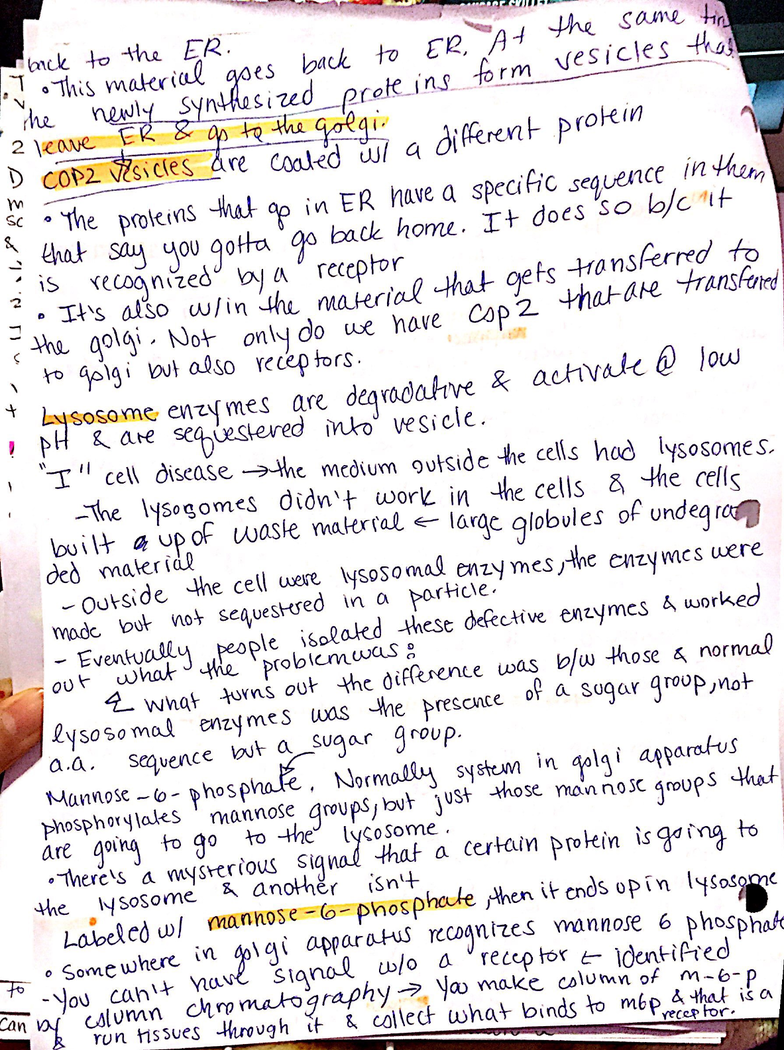 back to the ER.
• This material goes back to ER. At the same
the newly synthesized proteins form vesicles that
leave ER & go to the golgi.
COP2 vesicles are coated w/ a different protein
• The proteins that go in ER have a specific sequence in them
that say you gotta go back home. It does so b/c it
is recognized by a receptor
• It's also w/in the material that gets transferred to
the golgi. Not only do we have COP2 that are transferred
to golgi but also receptors.
Lysosome enzymes are degradative & activate @ low
pH & are sequestered into vesicle.
"I" cell disease → the medium outside the cells had lysosomes.
- The lysosomes didn't work in the cells & the cells
built up of waste material ← large globules of undegra
ded material
- Outside the cell were lysosomal enzymes, the enzymes were
made but not sequestered in a particle.
- Eventually people isolated these defective enzymes & worked
out what the problem was:
↳ What turns out the difference was b/w those & normal
lysosomal enzymes was the presence of a sugar group, not
a.a. sequence but a sugar group.
Mannose-6-phosphate. Normally system in golgi apparatus
phosphorylates mannose groups, but just those mannose groups that
are going to go to the lysosome.
• There's a mysterious signal that a certain protein is going to
the lysosome & another isn't
Labeled w/ mannose-6-phosphate, then it ends up in lysosome
• Somewhere in golgi apparatus recognizes mannose 6 phosphate
- You can't have signal w/o a receptor ← identified
by column chromatography → You make column of m-6-p
& run tissues through it & collect what binds to m6p & that is a
receptor.
to
Can